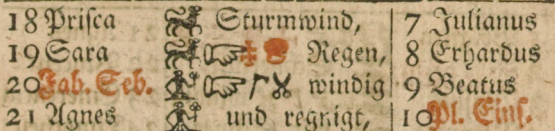 18 Prisca Sturmwind, 7 Julianus
19 Sara ☞ Regen, 8 Erhardus
20 Fab. Seb. ☞ windig 9 Beatus
21 Agnes und regnigt, 10 Pl. Eins.